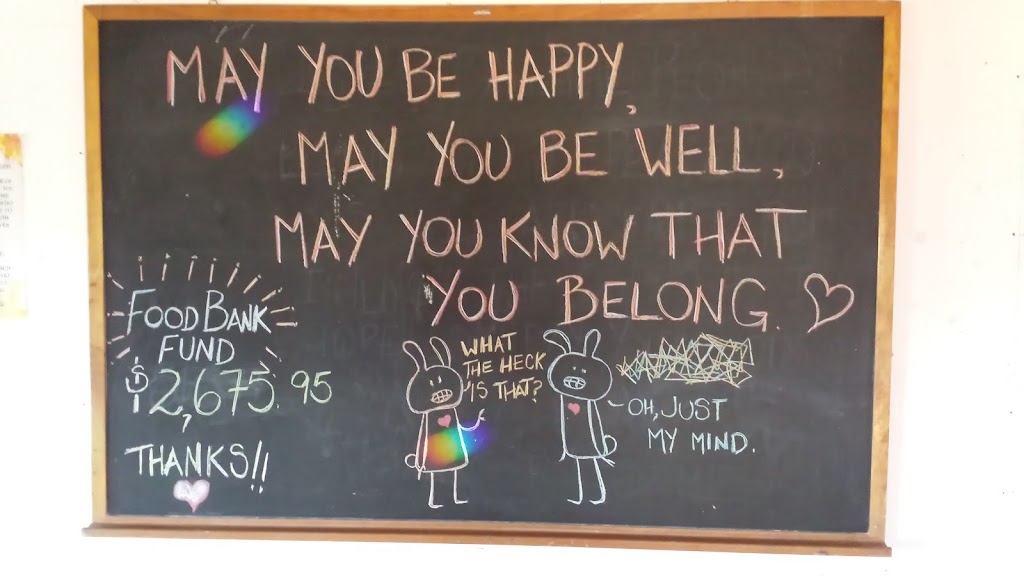 MAY YOU BE HAPPY,
MAY YOU BE WELL,
MAY YOU KNOW THAT
YOU BELONG.
FOOD BANK
FUND
$2,675.95
THANKS!!
WHAT
THE HECK
IS THAT?
OH, JUST
MY MIND.